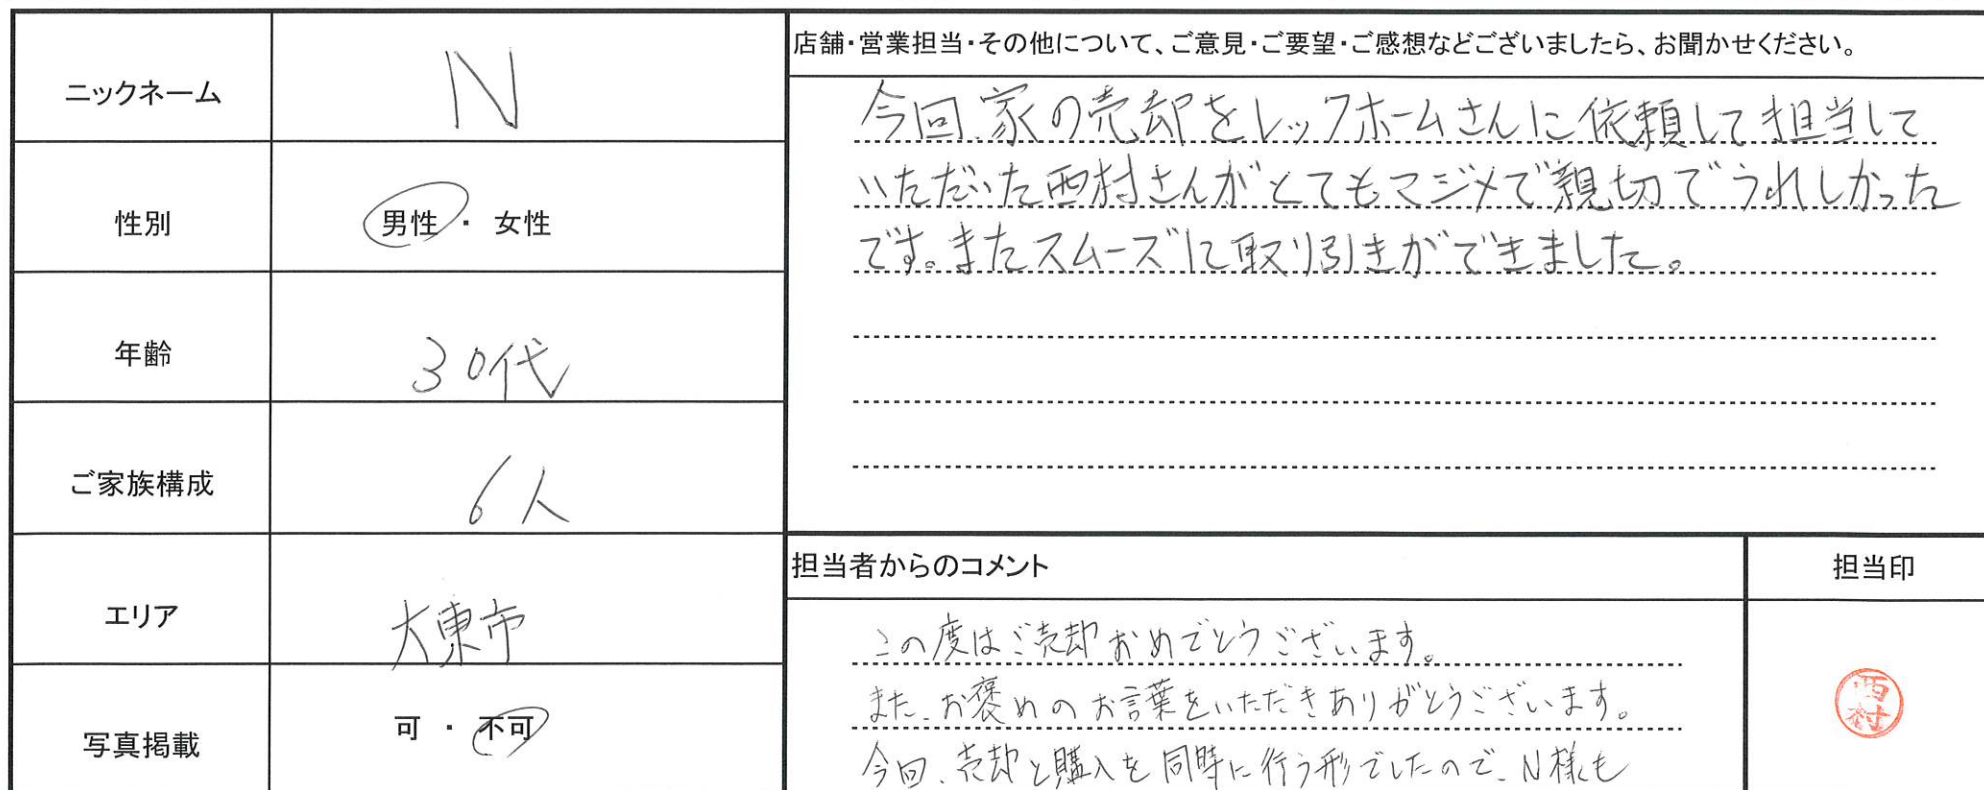 ニックネーム
N
性別
男性 ・ 女性
年齢
30代
ご家族構成
6人
エリア
大東市
写真掲載
可 ・ 不可
店舗・営業担当・その他について、ご意見・ご要望・ご感想などございましたら、お聞かせください。
今回、家の売却をレックホームさんに依頼して担当して
いただいた西村さんがとてもマジメで親切でうれしかった
です。またスムーズに取り引きができました。
担当者からのコメント
この度はご売却おめでとうございます。
また、お褒めのお言葉をいただきありがとうございます。
今回、売却と購入を同時に行う形でしたので、N様も
担当印
西村